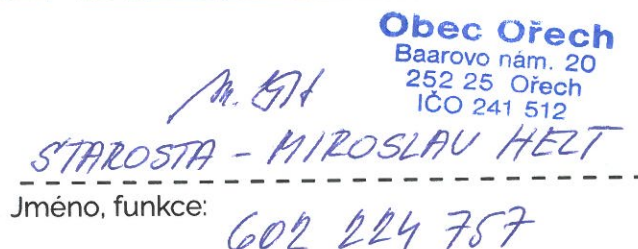 Obec Ořech
Baarovo nám. 20
252 25 Ořech
IČO 241 512
STAROSTA - MIROSLAV HELT
Jméno, funkce:
602 224 757